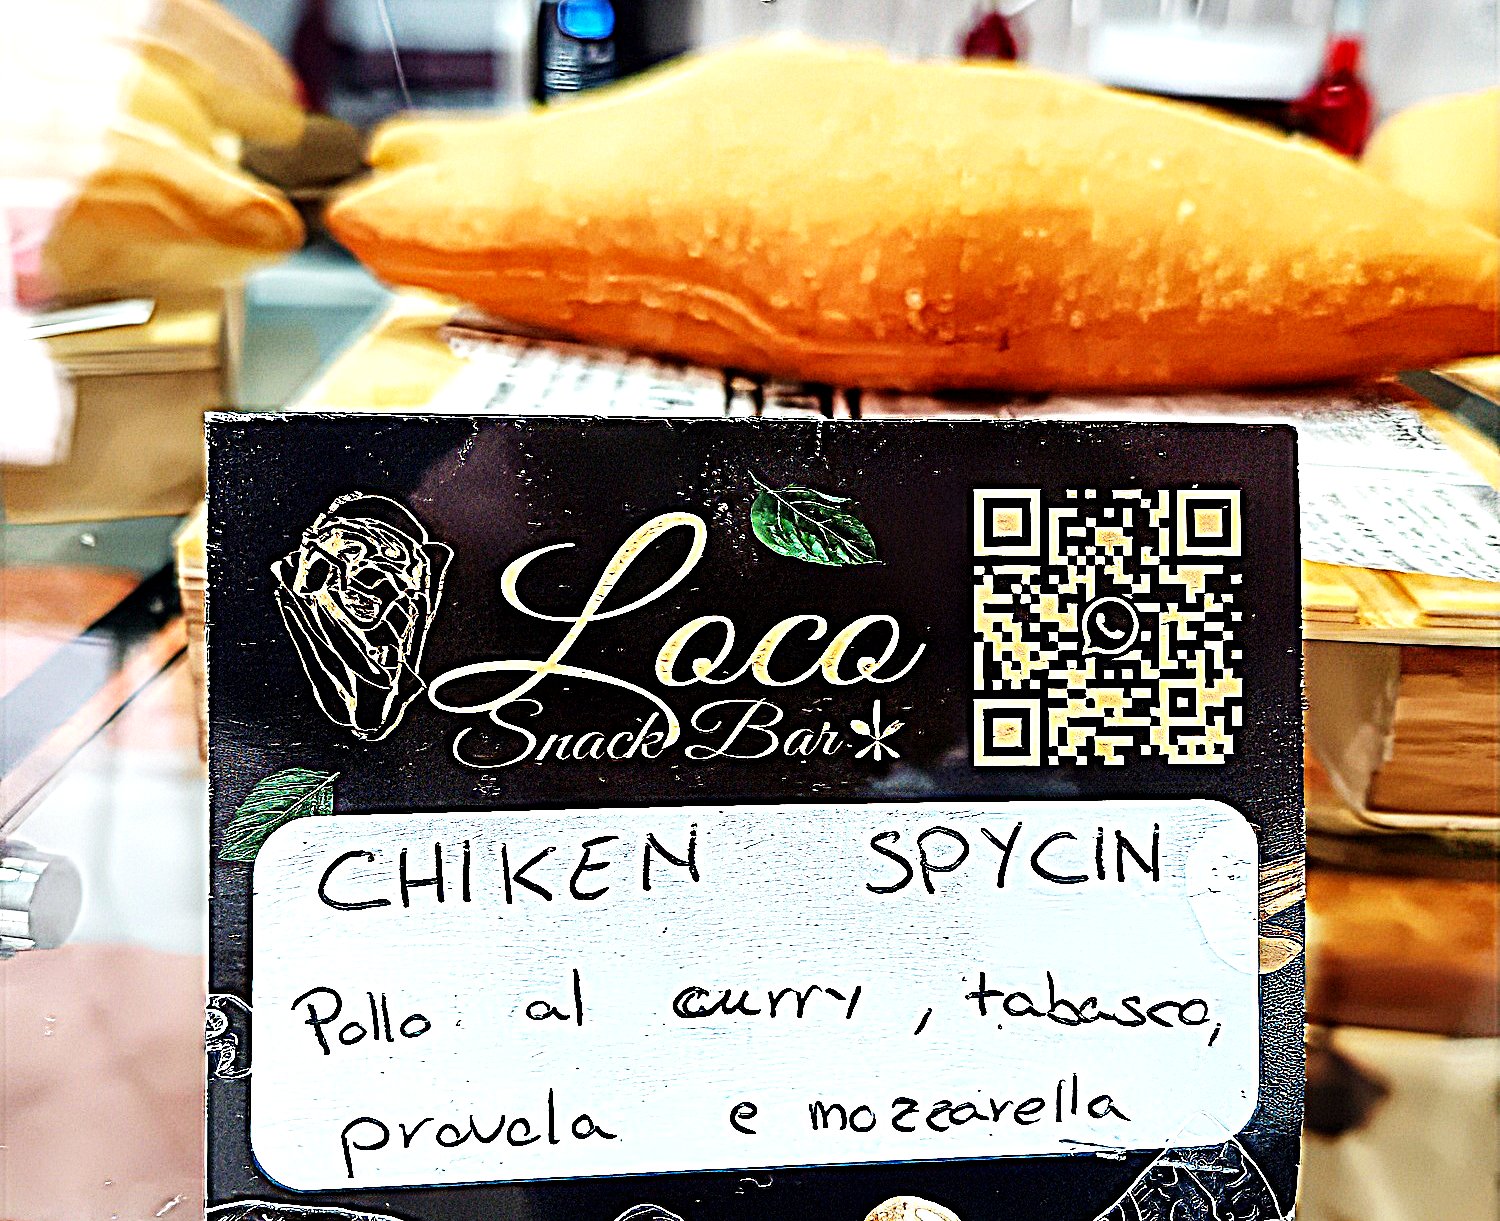 Loco
Snack Bar
CHIKEN SPYCIN
Pollo al curry, tabasco,
provola e mozzarella